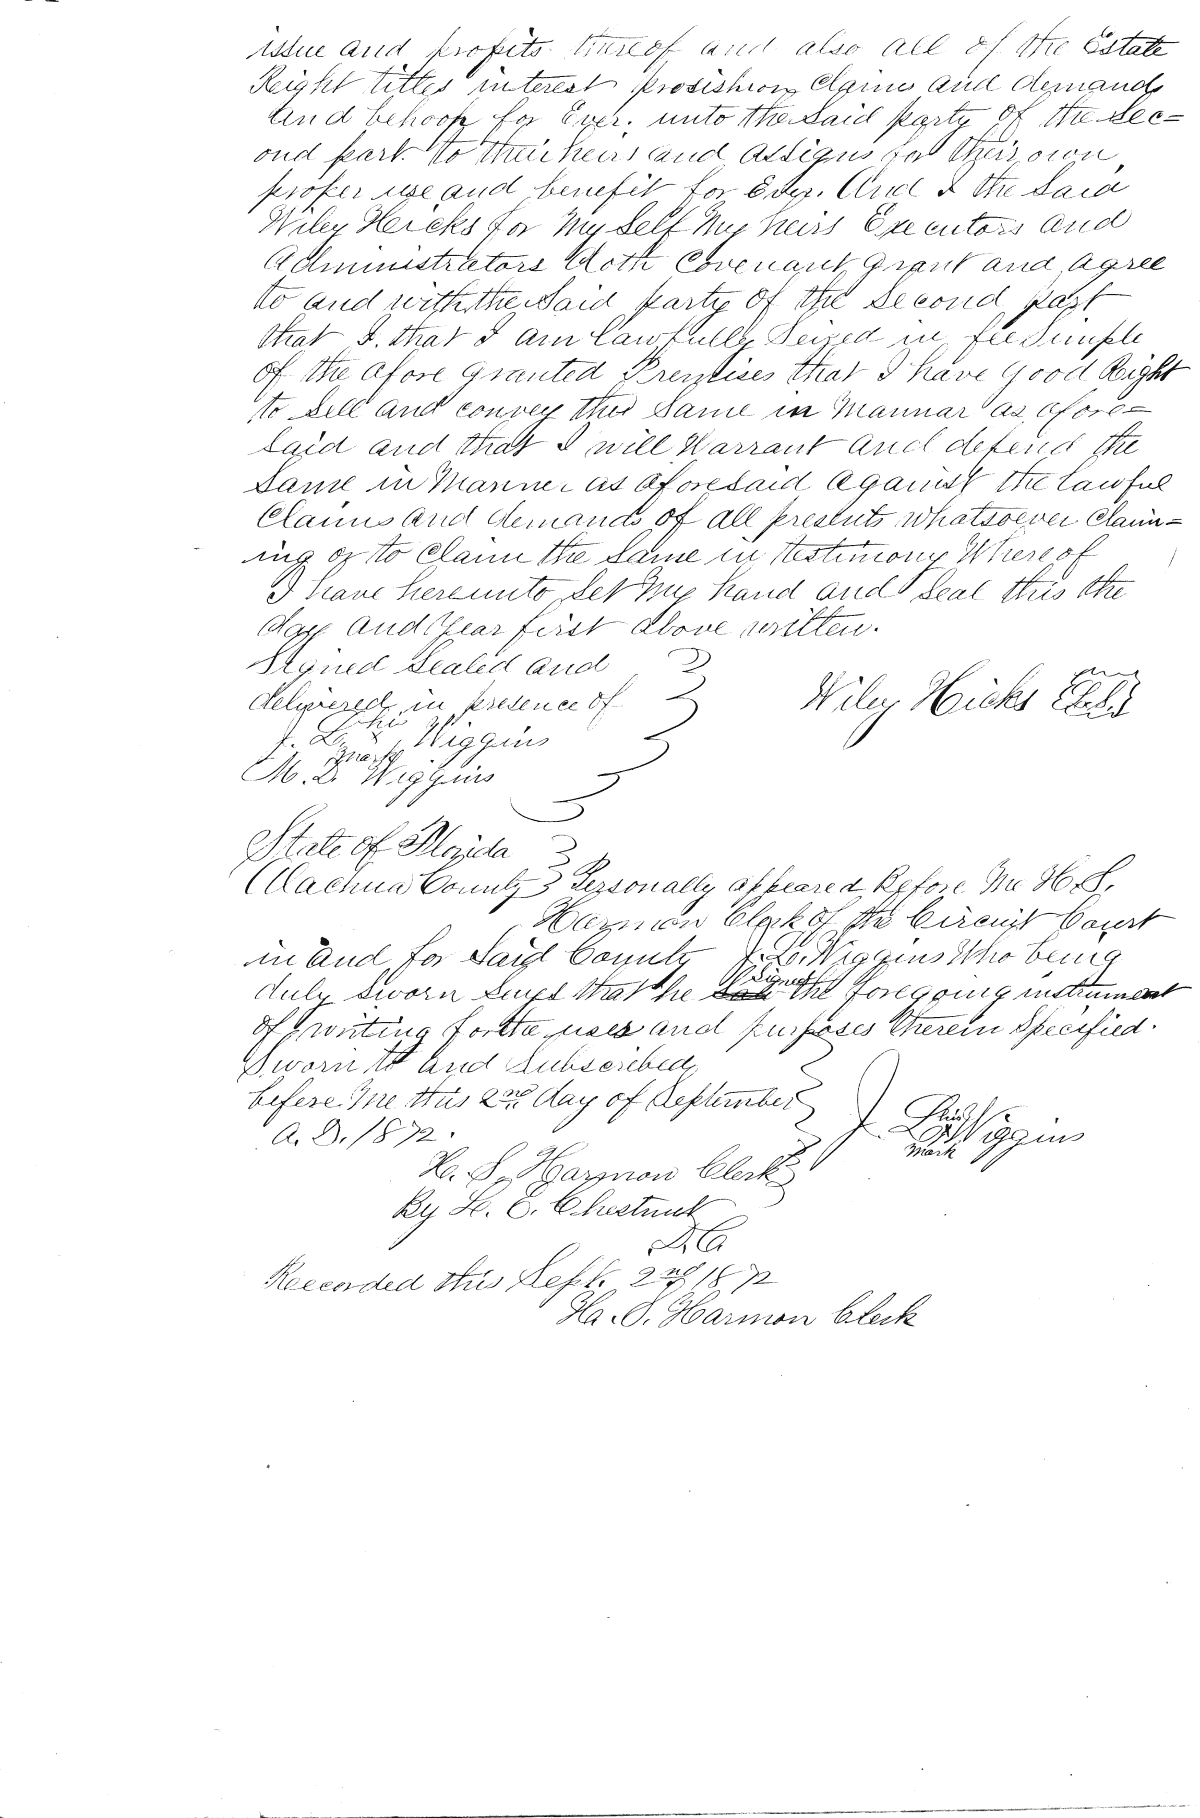 issue and profits thereof and also all of the Estate
Right titles interest prosishion Claims and demands
and behoop for Ever. unto the Said party of the Sec=
ond part. to their heirs and assigns for their own
proper use and benefit for Ever. And I the Said
Wiley Hicks for My Self My heirs Executors and
Administrators doth Covenant, grant and agree
to and with the Said party of the Second part
that I. that I am lawfully Seized in fee Simple
of the afore granted Premises that I have good Right
to Sell and convey the Same in Mannar as afore=
Said and that I will Warrant and defend the
Same in Manner as aforesaid against the lawful
Claims and demands of all presents whatsoever Claim=
ing or to Claim the Same in testimony Whereof
I have hereunto Set My hand and Seal this the
day and Year first above written.
Signed Sealed and
delivered in presence of
Wiley Hicks Seal
his
J. L. x Wiggins
mark
M. D. Wiggins
State of Florida
Alachua County Personally appeared Before Me H. S.
Harmon Clerk of the Circuit Court
in and for Said County J. L. Wiggins Who being
signed
duly Sworn Says that he the foregoing instrument
of writing for the uses and purposes therein Specified.
Sworn to and Subscribed
before me this 2nd day of September
A. D. 1872.
his
J. L. x Wiggins
mark
H. S. Harmon Clerk
By L. E. Chestnut
D. C.
Reccorded this Sept. 2nd 1872
Ha. S. Harmon Clerk